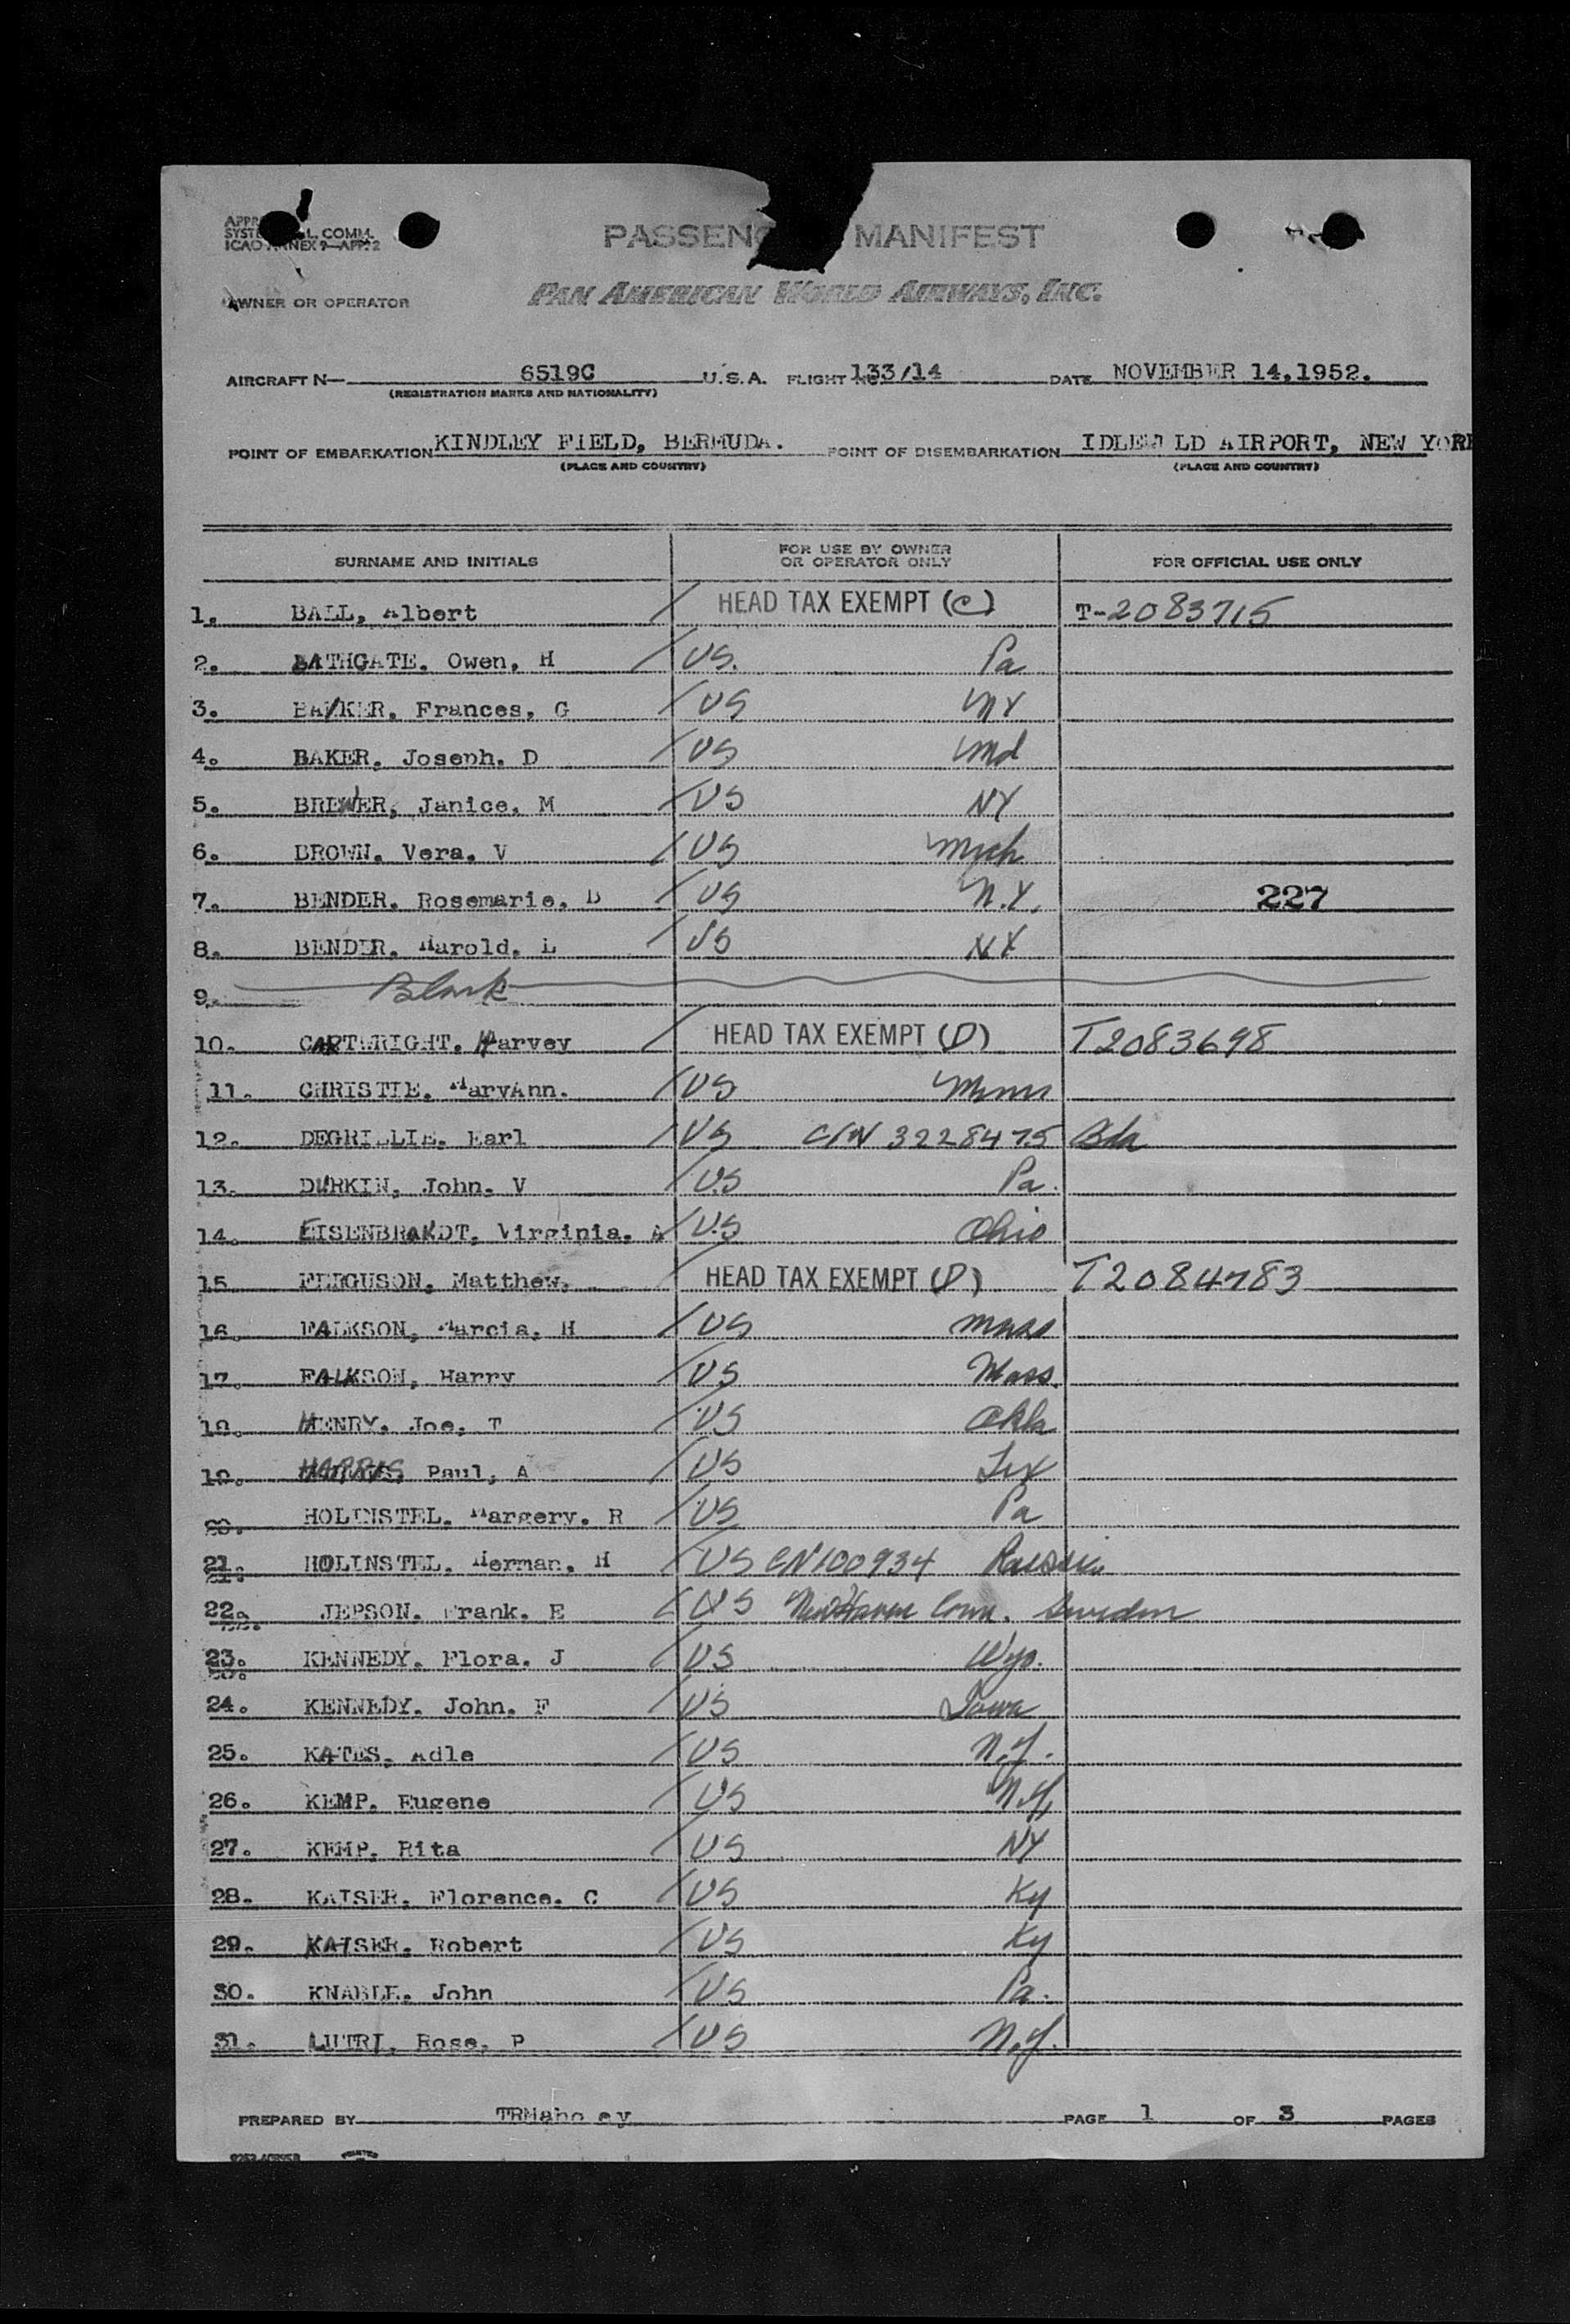 APPR
SYSTE L. COMM.
ICAO ANNEX 9—APP. 2
PASSENG MANIFEST
OWNER OR OPERATOR PAN AMERICAN WORLD AIRWAYS, INC.
AIRCRAFT N— 6519C U.S.A. FLIGHT 133/14 DATE NOVEMBER 14,1952.
(REGISTRATION MARKS AND NATIONALITY)
POINT OF EMBARKATION KINDLEY FIELD, BERMUDA. POINT OF DISEMBARKATION IDLEWILD AIRPORT, NEW YORK
(PLACE AND COUNTRY) (PLACE AND COUNTRY)
SURNAME AND INITIALS FOR USE BY OWNER OR OPERATOR ONLY FOR OFFICIAL USE ONLY
1. BALL, Albert / HEAD TAX EXEMPT (C) T-2083715
2. BATHGATE, Owen, H / US. Pa
3. BAKER, Frances, G / US NY
4. BAKER, Joseph, D / US Md
5. BREWER, Janice, M / US NY
6. BROWN, Vera, V / US Mich
7. BENDER, Rosemarie, B / US N.Y. 227
8. BENDER, Harold, L / US NY
9. Blank
10. CARTWRIGHT, Harvey / HEAD TAX EXEMPT (D) T2083698
11. CHRISTIE, MaryAnn. / US Minn
12. DEGRILLIE, Earl / US C/N 3228475 Bda
13. DURKIN, John, V / US Pa.
14. EISENBRANDT, Virginia, A / US Ohio
15 FERGUSON, Matthew, / HEAD TAX EXEMPT (D) T2084783
16. FALKSON, Marcia, H / US Mass
17. FALKSON, Harry / US Mass.
18. HENRY, Joe, T / US Okla
19. HARRIS, Paul, A / US Tex
20. HOLINSTEL, Margery, R / US Pa
21. HOLINSTEL, Herman, H / US CN100934 Russia
22. JEPSON, Frank, E / US New Haven Conn. Sweden
23. KENNEDY, Flora, J / US Wyo.
24. KENNEDY, John, F / US Iowa
25. KATES, Adle / US N.J.
26. KEMP, Eugene / US N.Y.
27. KEMP, Rita / US NY
28. KAISER, Florence, C / US Ky
29. KAISER, Robert / US Ky
30. KNABLE, John / US Pa.
31. LUTRI, Rose, P / US N.J.
PREPARED BY TRMahoey PAGE 1 OF 3 PAGES